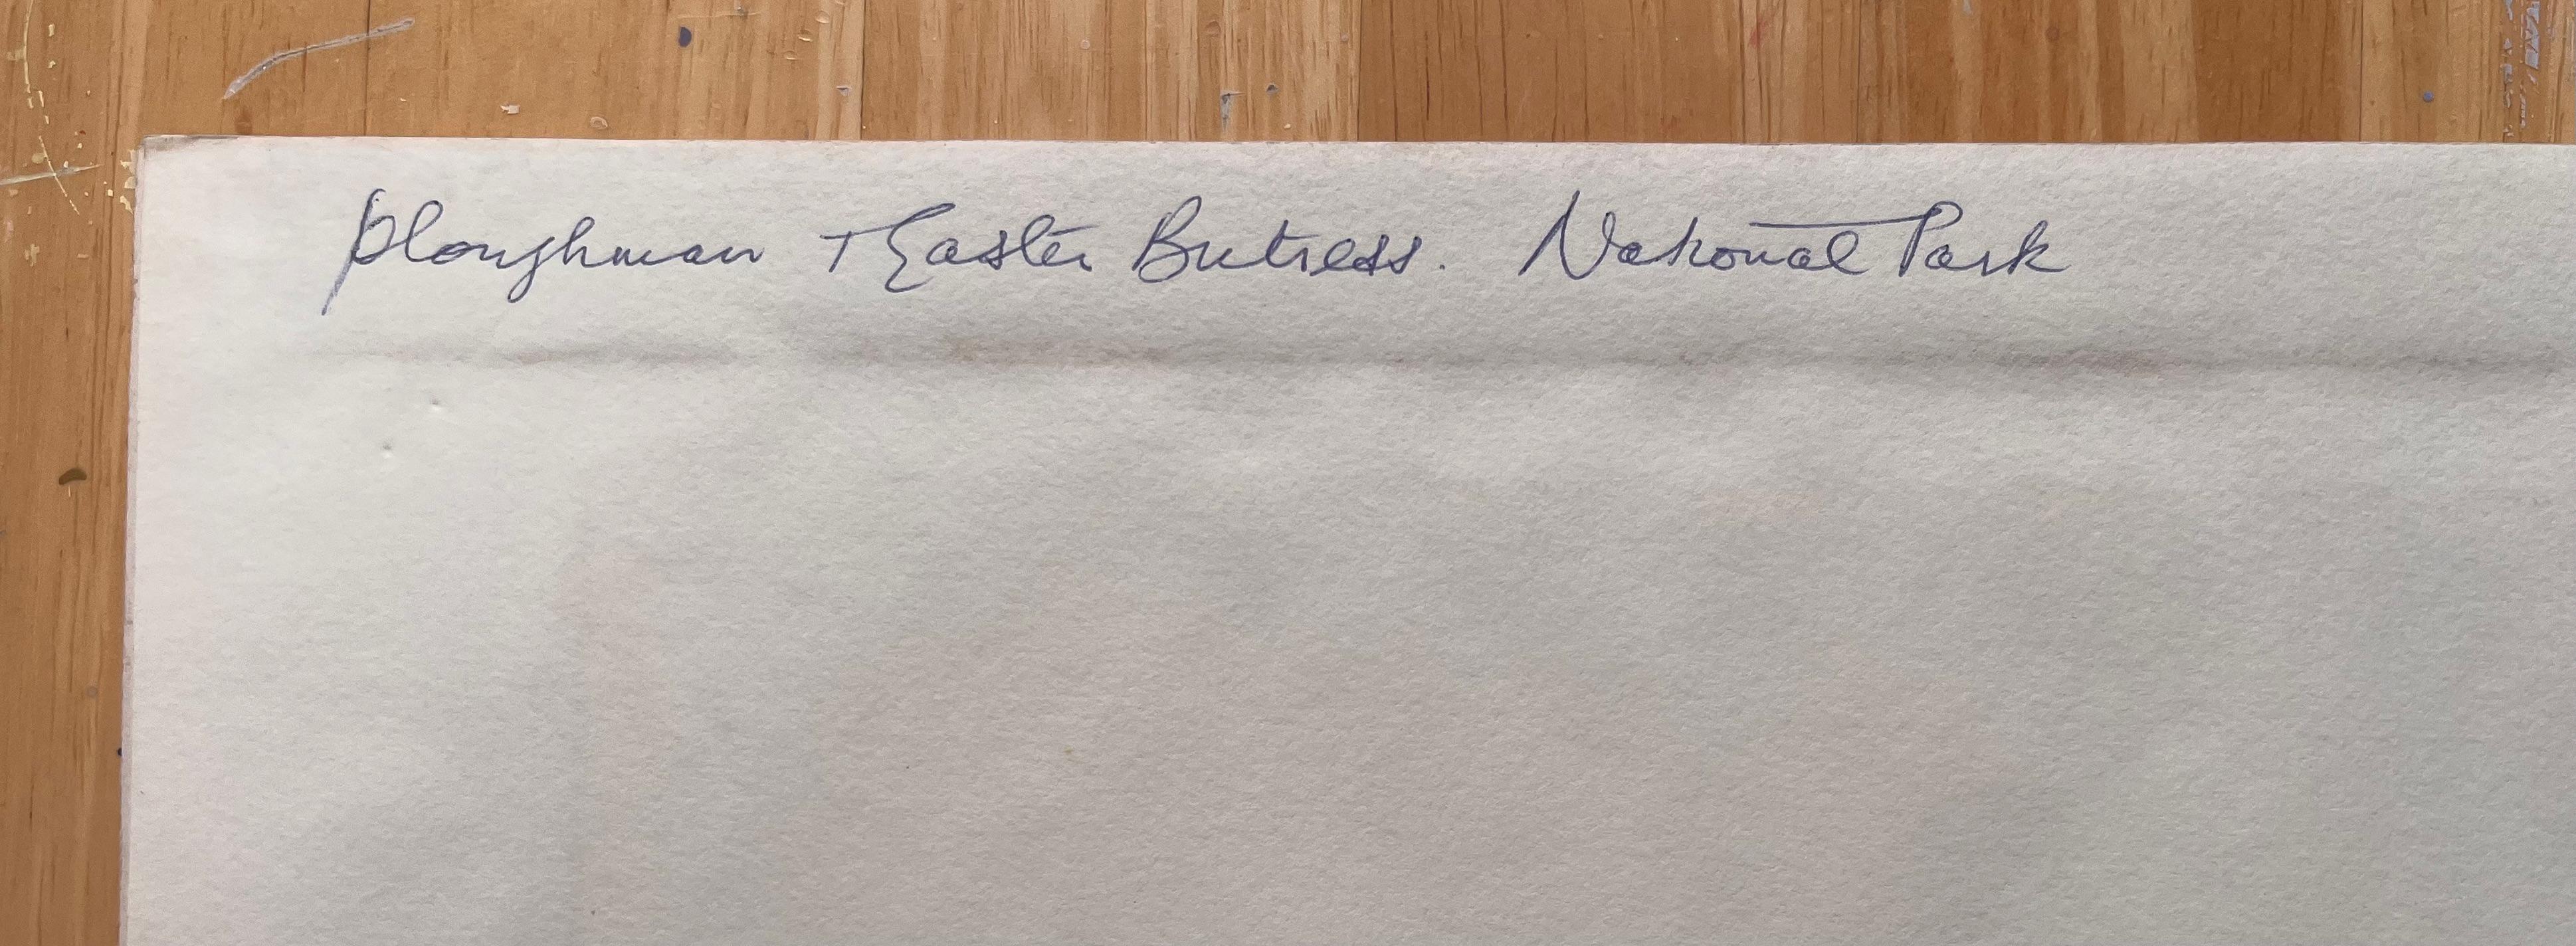 Ploughman + Easter Butress. National Park